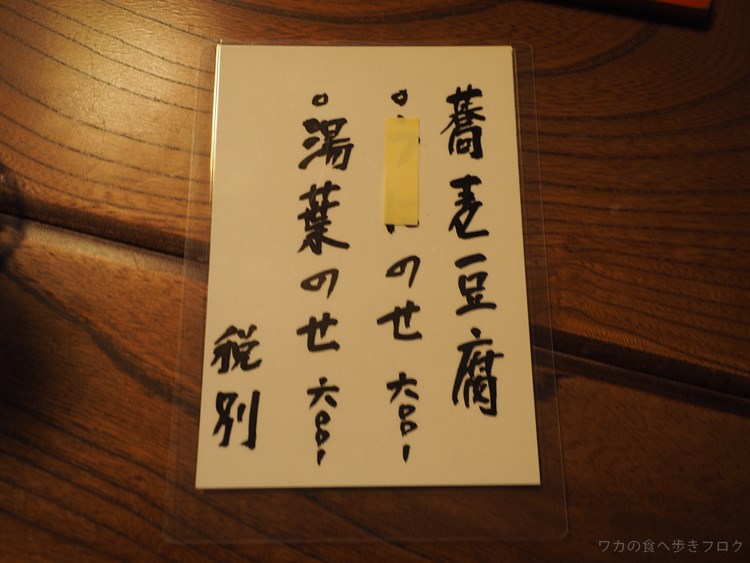 蕎麦豆腐
○のせ 六〇〇ー
○湯葉のせ 六〇〇ー
税別
ワカの食べ歩きブログ